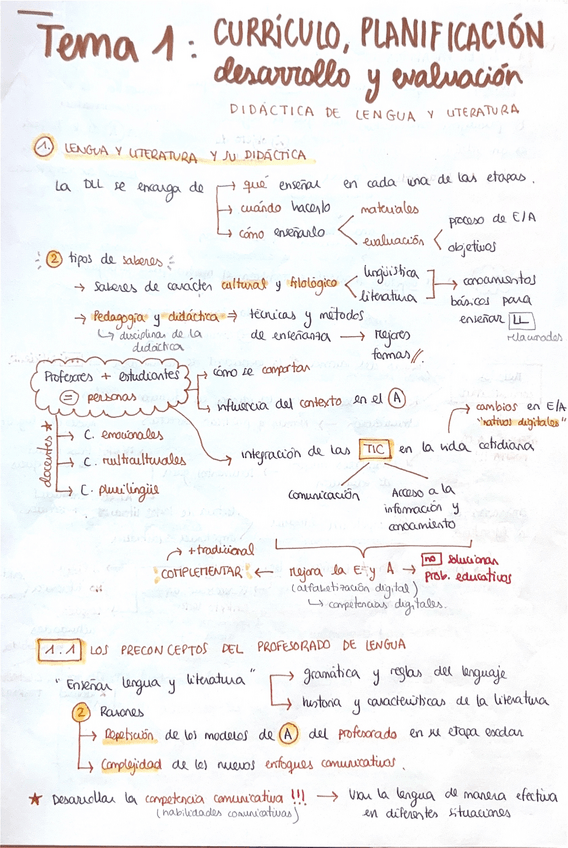 Tema 1: CURRÍCULO, PLANIFICACIÓN
desarrollo y evaluación
DIDÁCTICA DE LENGUA Y LITERATURA
1. LENGUA Y LITERATURA Y SU DIDÁCTICA
La DLL se encarga de → qué enseñar en cada una de las etapas.
→ cuándo hacerlo
→ cómo enseñarlo < materiales
evaluación < proceso de E/A
objetivos
2 tipos de saberes
→ saberes de carácter cultural y filológico < lingüística
literatura → conocimientos
básicos para
enseñar LL
→ Pedagogía y didáctica ⇒ técnicas y métodos
de enseñanza → mejores
formas //.
↳ disciplinas de la
didáctica
relacionados
Profesores + estudiantes
= personas
→ cómo se comportan
→ influencia del contexto en el A
→ integración de las TIC en la vida cotidiana
→ cambios en E/A
"nativos digitales"
docentes ★
→ C. emocionales
→ C. multiculturales
→ C. plurilingüe
comunicación
Acceso a la
información y
conocimiento
→ + tradicional
COMPLEMENTAR ← mejora la E y A → no solucionan
prob. educativos
(alfabetización digital)
↳ competencias digitales.
1.1 LOS PRECONCEPTOS DEL PROFESORADO DE LENGUA
"Enseñar lengua y literatura" → gramática y reglas del lenguaje
→ historia y características de la literatura
2 Razones
→ Repetición de los modelos de A del profesorado en su etapa escolar
→ Complejidad de los nuevos enfoques comunicativos.
★ Desarrollar la competencia comunicativa !!! → Usar la lengua de manera efectiva
en diferentes situaciones
(habilidades comunicativas)